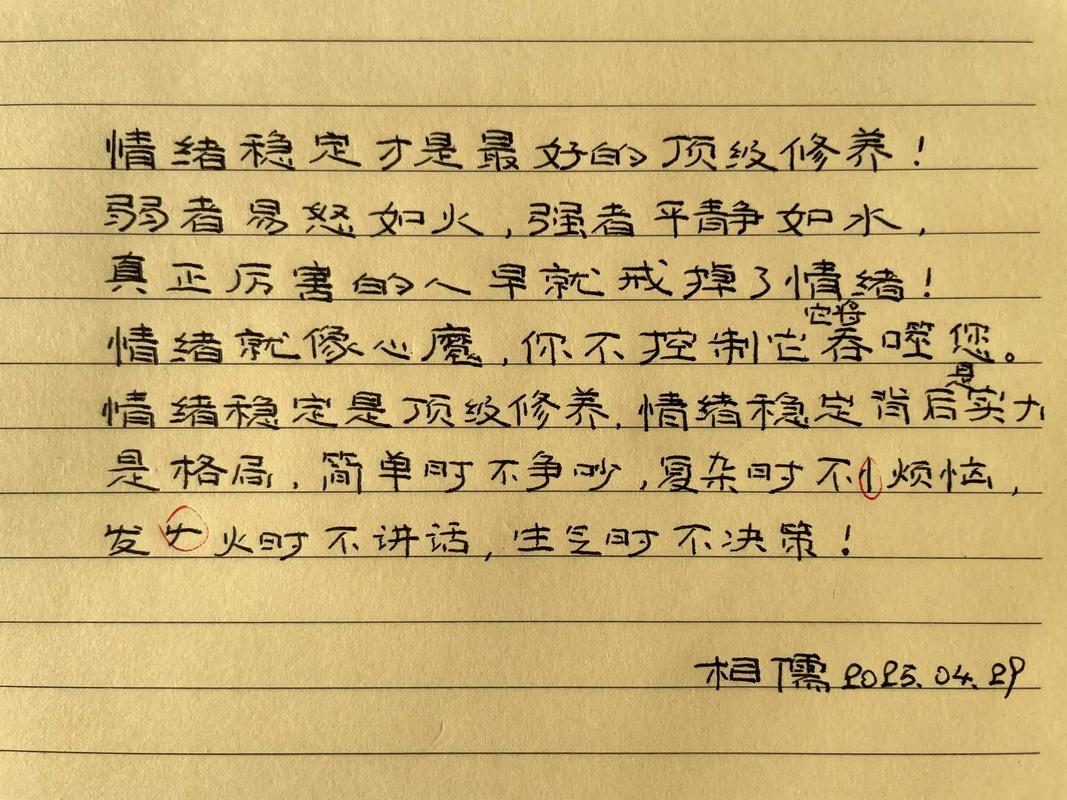 情绪稳定才是最好的顶级修养！
弱者易怒如火，强者平静如水，
真正厉害的人早就戒掉了情绪！
它将
情绪就像心魔，你不控制它吞噬您。
是
情绪稳定是顶级修养，情绪稳定背后实力
是格局，简单时不争吵，复杂时不烦恼，
发火时不讲话，生气时不决策！
相儒2025.04.29